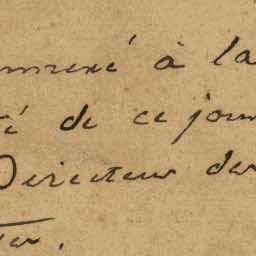 annexé à la
té de ce jour
Directeur des